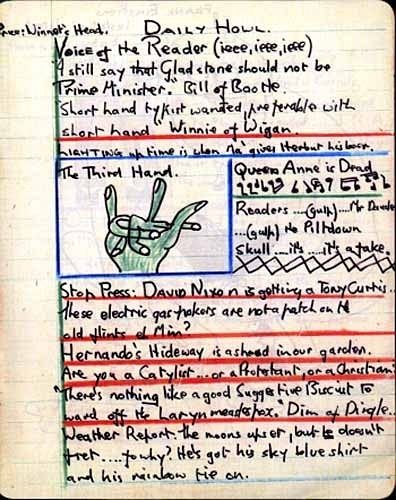 Press: Winnet's Head.
DAILY HOWL.
Voice of the Reader (ieee, ieee, ieee)
"I still say that Gladstone should not be
Prime Minister." Bill of Bootle.
Short hand typist wanted, preferable with
short hand "Winnie of Wigan.
LIGHTING up time is when Ma gives Herbut his beer.
The Third Hand.
Queen Anne is Dead
Readers ....(gulp)....Mr
...(gulp) the Piltdown
Skull ....it's ....it's a fake.
Stop Press: DAVID NIXON is getting a TONY CURTIS..
These electric gas pokers are not a patch on the
old flints eh Mim?
Hernando's Hideway is a shed in our garden.
Are you a Catylist...or a Protestant, or a Christian?
"There's nothing like a good Suggestive Biscuit To
ward off the Larynmeadspox." Dim of Dingle..
Weather Report. the moons upset, but he doesn't
fret....for why? He's got his sky blue shirt
and his rainbow tie on.